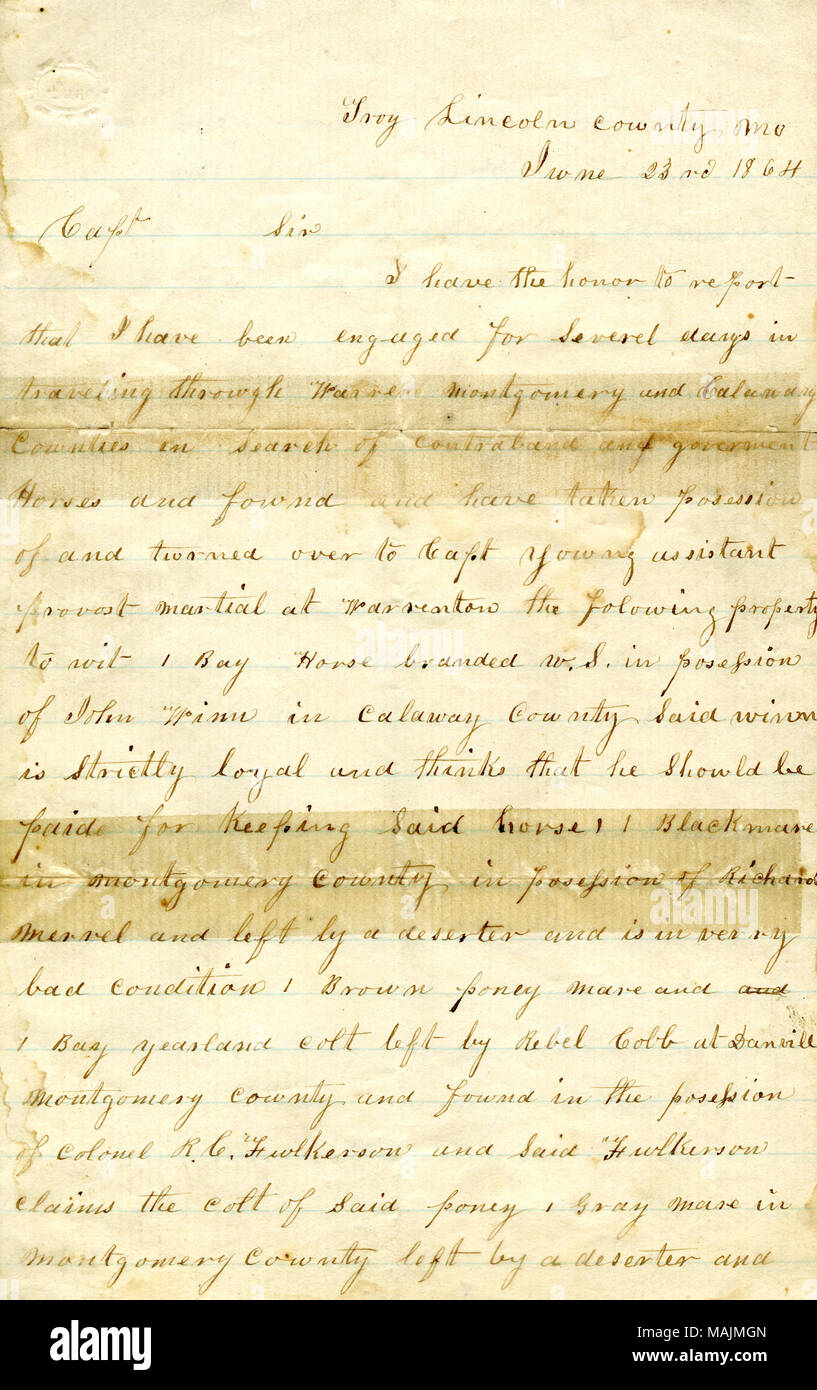 Troy Lincoln county Mo
June 23rd 1864
Capt Sir
I have the honor to report
that I have been engaged for Severel days in
traveling throwgh Warren Montgomery and Calaway
Cownties in Search of Contraband and goverment
Horses and fownd and have taken posession
of and twrned over to Capt Yowng assistant
provost martial at Warrenton the folowing property
to wit 1 Bay Horse branded W.S. in posession
of John Winn in Calaway Cownty Said winn
is Strictly loyal and thinks that he Showld be
paid for Keeping Said horse 1 1 Black mare
in Montgomery Cownty in posession of Richard
Merrel and left by a deserter and is in verry
bad condition 1 Brown poney mare and and
1 Bay yearland colt left by Rebel Cobb at Danvill
Montgomery Cownty and fownd in the posession
of Colonel R.C. Fwlkerson and Said Fwlkerson
claims the colt of Said poney 1 Gray Mare in
Montgomery Cownty left by a deserter and
alamy
a
alamy
a
alamy
alamy
Image ID: MAJMGN
www.alamy.com